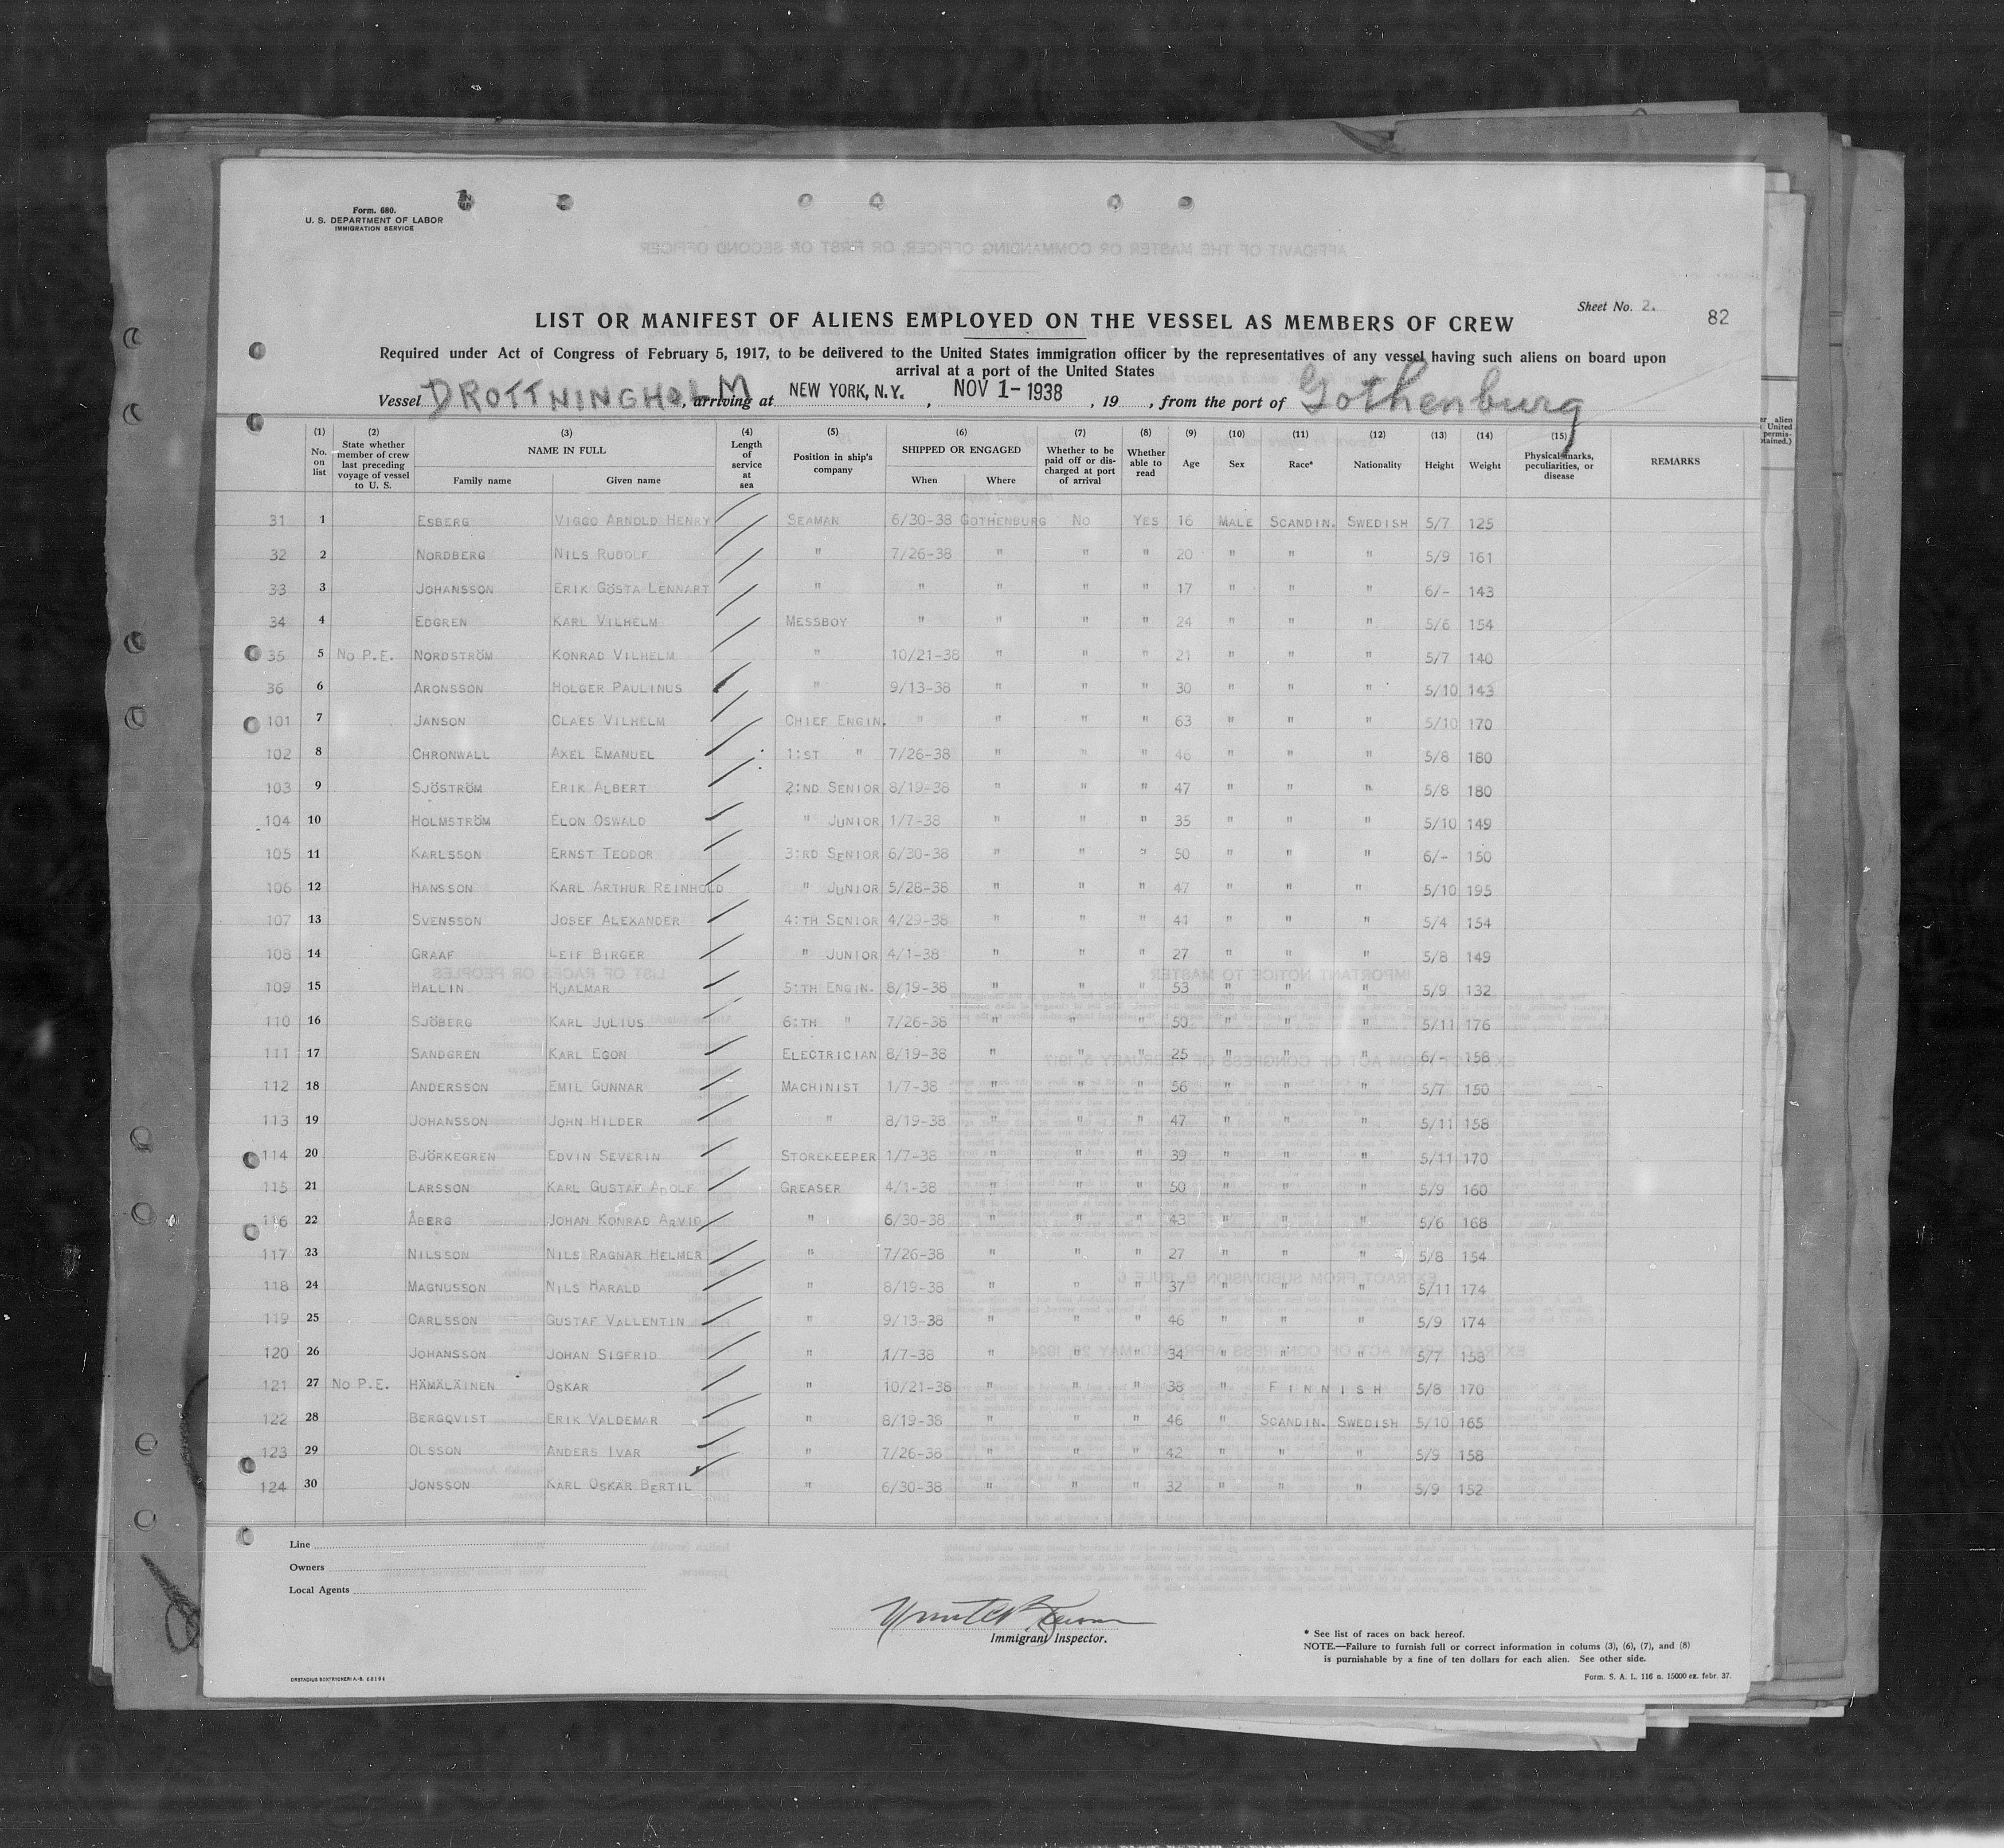 Form. 680.
U. S. DEPARTMENT OF LABOR
IMMIGRATION SERVICE
Sheet No. 2.
82
LIST OR MANIFEST OF ALIENS EMPLOYED ON THE VESSEL AS MEMBERS OF CREW
Required under Act of Congress of February 5, 1917, to be delivered to the United States immigration officer by the representatives of any vessel having such aliens on board upon
arrival at a port of the United States
Vessel DROTTNINGHOLM, arriving at NEW YORK, N.Y., NOV 1-1938, 19, from the port of Gothenburg
(1) No. on list (2) State whether member of crew last preceding voyage of vessel to U. S. (3) NAME IN FULL Family name Given name (4) Length of service at sea (5) Position in ship's company (6) SHIPPED OR ENGAGED When Where (7) Whether to be paid off or discharged at port of arrival (8) Whether able to read (9) Age (10) Sex (11) Race* (12) Nationality (13) Height (14) Weight (15) Physical marks, peculiarities, or disease REMARKS
31 1 ESBERG VIGGO ARNOLD HENRY SEAMAN 6/30-38 GOTHENBURG NO YES 16 MALE SCANDIN. SWEDISH 5/7 125
32 2 NORDBERG NILS RUDOLF " 7/26-38 " " " 20 " " " 5/9 161
33 3 JOHANSSON ERIK GÖSTA LENNART " " " " " 17 " " " 6/- 143
34 4 EDGREN KARL VILHELM MESSBOY " " " " 24 " " " 5/6 154
35 5 NO P.E. NORDSTRÖM KONRAD VILHELM " 10/21-38 " " " 21 " " " 5/7 140
36 6 ARONSSON HOLGER PAULINUS " 9/13-38 " " " 30 " " " 5/10 143
101 7 JANSON CLAES VILHELM CHIEF ENGIN. " " " " 63 " " " 5/10 170
102 8 CHRONWALL AXEL EMANUEL 1:ST " 7/26-38 " " " 46 " " " 5/8 180
103 9 SJÖSTRÖM ERIK ALBERT 2:ND SENIOR 8/19-38 " " " 47 " " " 5/8 180
104 10 HOLMSTRÖM ELON OSWALD " JUNIOR 1/7-38 " " " 35 " " " 5/10 149
105 11 KARLSSON ERNST TEODOR 3:RD SENIOR 6/30-38 " " " 50 " " " 6/- 150
106 12 HANSSON KARL ARTHUR REINHOLD " JUNIOR 5/28-38 " " " 47 " " " 5/10 195
107 13 SVENSSON JOSEF ALEXANDER 4:TH SENIOR 4/29-38 " " " 41 " " " 5/4 154
108 14 GRAAF LEIF BIRGER " JUNIOR 4/1-38 " " " 27 " " " 5/8 149
109 15 HALLIN HJALMAR 5:TH ENGIN. 8/19-38 " " " 53 " " " 5/9 132
110 16 SJÖBERG KARL JULIUS 6:TH " 7/26-38 " " " 50 " " " 5/11 176
111 17 SANDGREN KARL EGON ELECTRICIAN 8/19-38 " " " 25 " " " 6/- 158
112 18 ANDERSSON EMIL GUNNAR MACHINIST 1/7-38 " " " 56 " " " 5/7 150
113 19 JOHANSSON JOHN HILDER " 8/19-38 " " " 47 " " " 5/11 158
114 20 BJÖRKEGREN EDVIN SEVERIN STOREKEEPER 1/7-38 " " " 39 " " " 5/11 170
115 21 LARSSON KARL GUSTAF ADOLF GREASER 4/1-38 " " " 50 " " " 5/9 160
116 22 ÅBERG JOHAN KONRAD ARVID " 6/30-38 " " " 43 " " " 5/6 168
117 23 NILSSON NILS RAGNAR HELMER " 7/26-38 " " " 27 " " " 5/8 154
118 24 MAGNUSSON NILS HARALD " 8/19-38 " " " 37 " " " 5/11 174
119 25 CARLSSON GUSTAF VALLENTIN " 9/13-38 " " " 46 " " " 5/9 174
120 26 JOHANSSON JOHAN SIGFRID " 1/7-38 " " " 34 " " " 5/7 158
121 27 NO P.E. HÄMÄLÄINEN OSKAR " 10/21-38 " " " 38 " FINNISH 5/8 170
122 28 BERGQVIST ERIK VALDEMAR " 8/19-38 " " " 46 " SCANDIN. SWEDISH 5/10 165
123 29 OLSSON ANDERS IVAR " 7/26-38 " " " 42 " " " 5/9 158
124 30 JONSSON KARL OSKAR BERTIL " 6/30-38 " " " 32 " " " 5/9 152
Line
Owners
Local Agents
Immigrant Inspector.
* See list of races on back hereof.
NOTE.—Failure to furnish full or correct information in colums (3), (6), (7), and (8)
is purnishable by a fine of ten dollars for each alien. See other side.
Form. S. A. L. 116 n. 15000 ex. febr. 37.